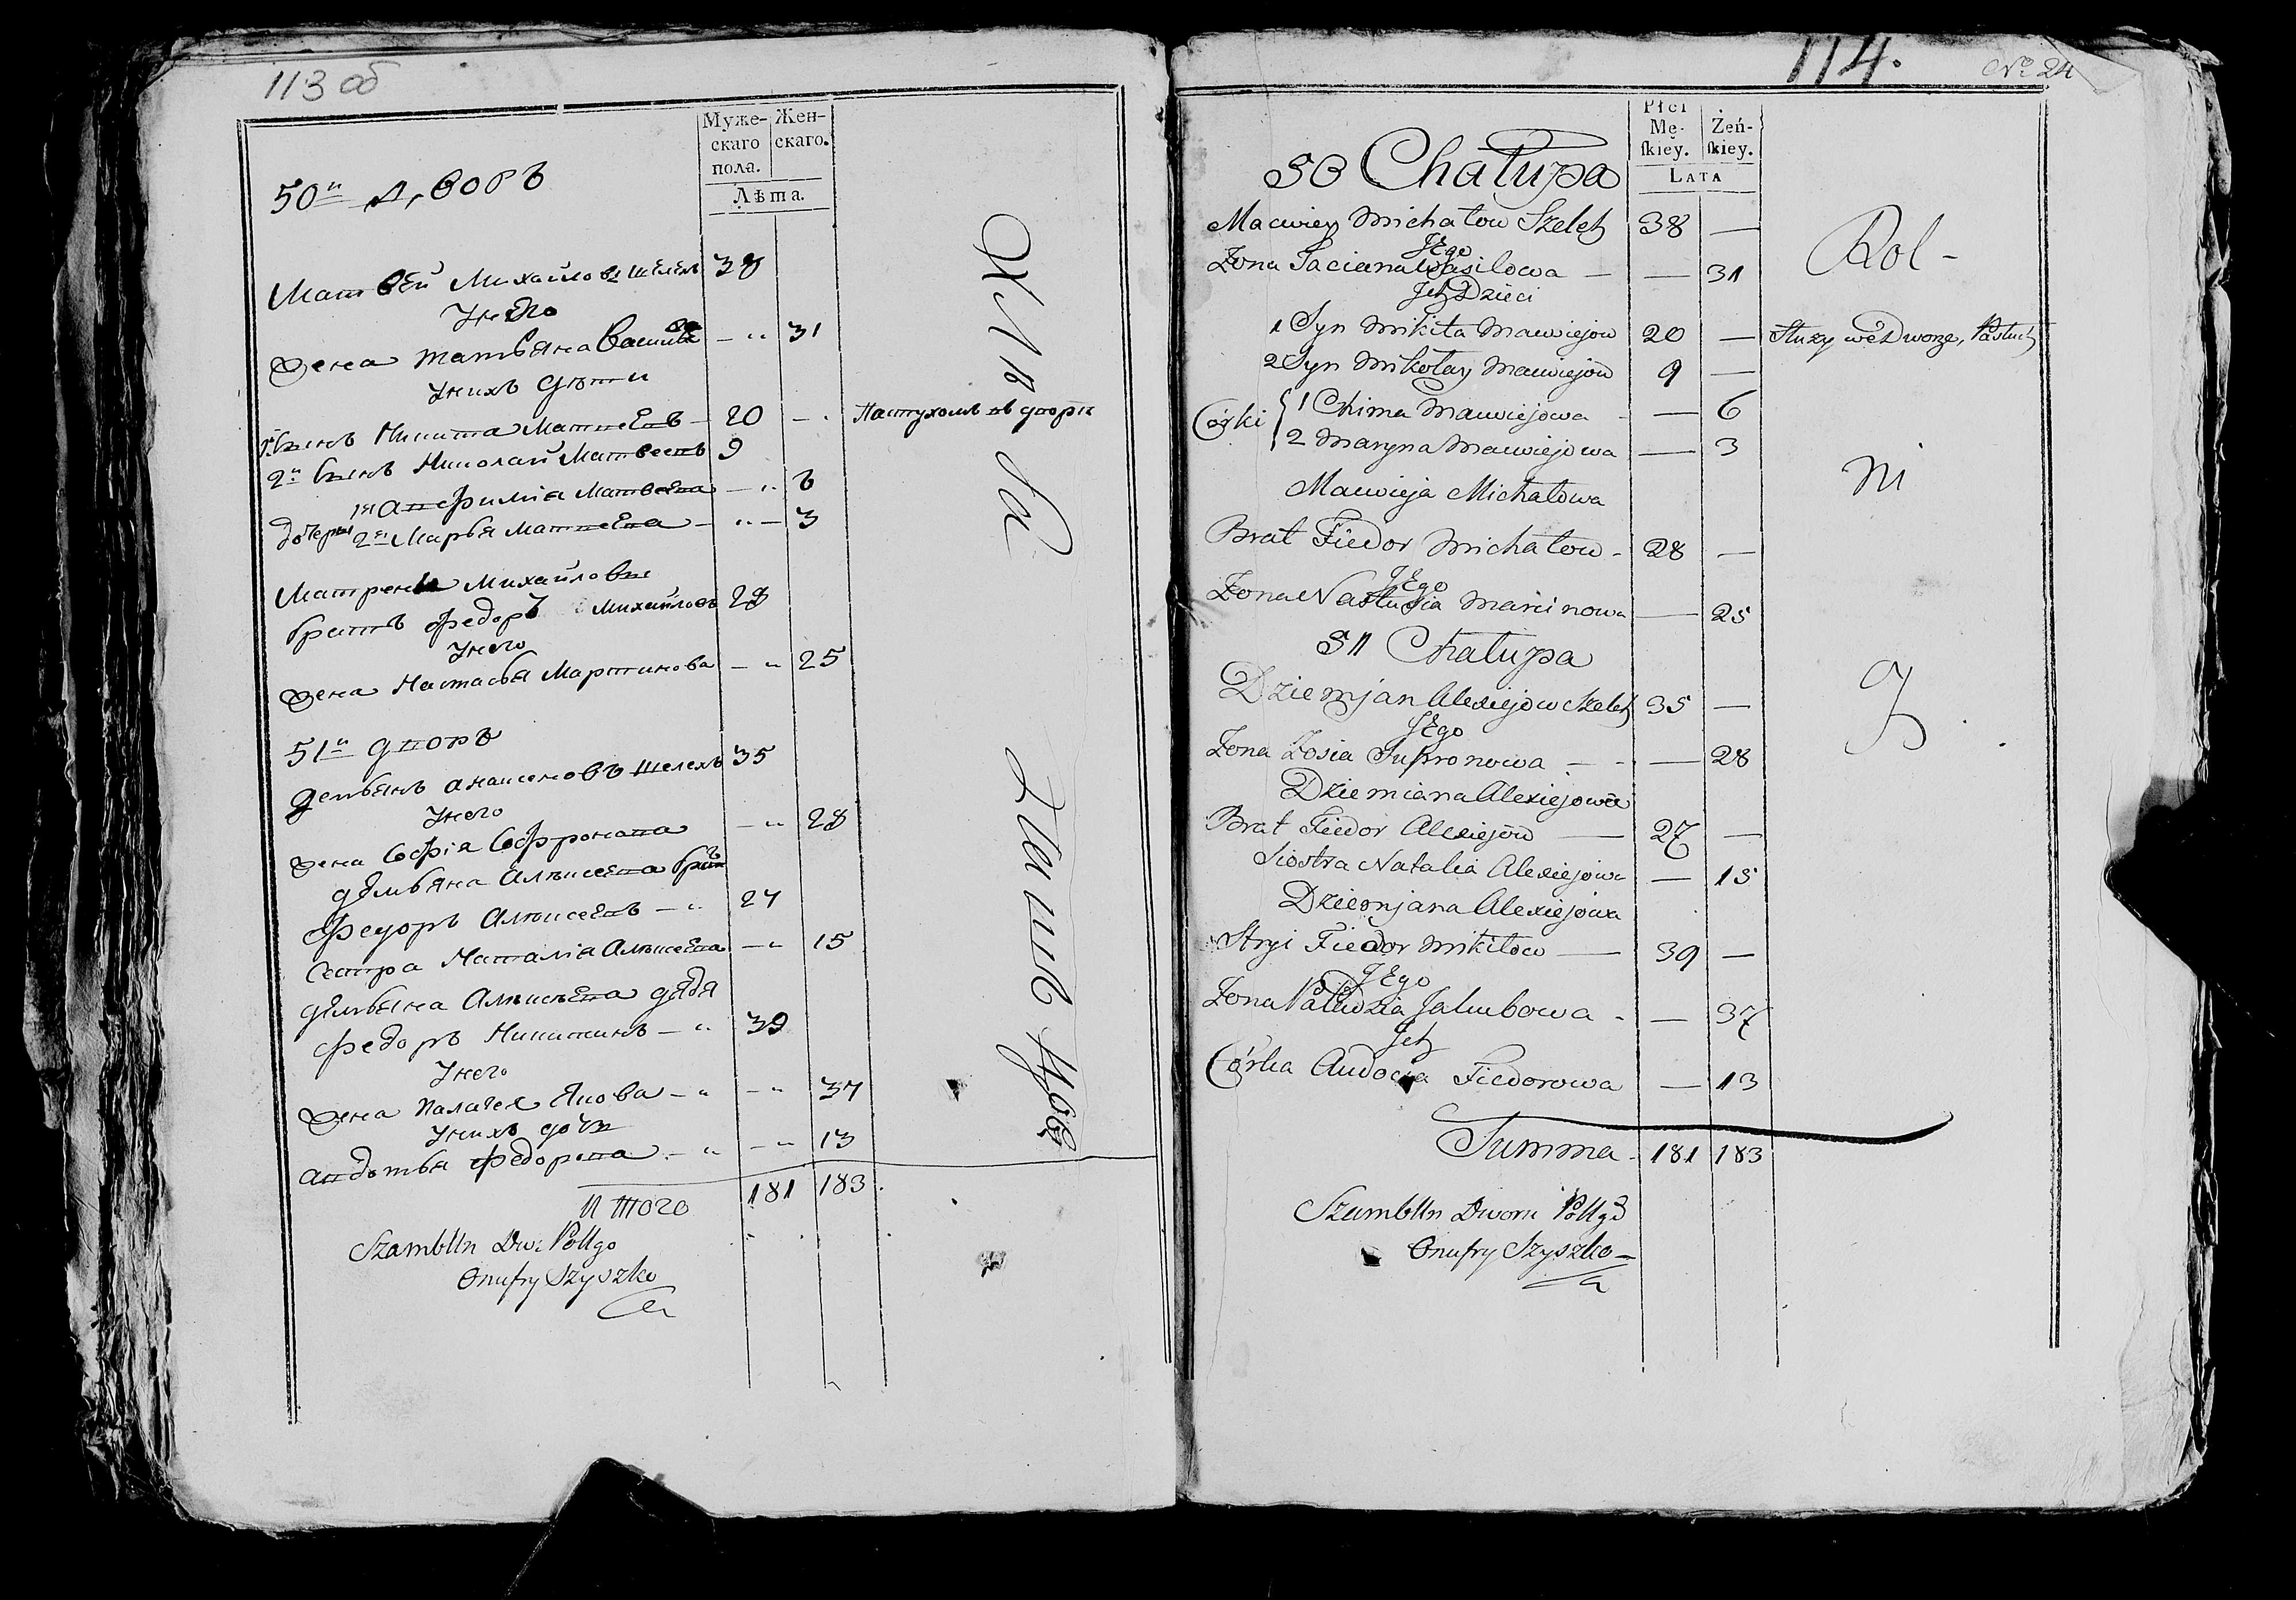 113 об
Муже-
скаго
пола.
Жен-
скаго.
Лѣта.
50й дворъ
Матвей Михайловъ Шелехъ 38
У него
Жена татьяна Василева — „ 31
У нихъ дѣти
1й Сынъ Никита Матвеевъ — 20 — Пастухомъ въ дворѣ
2й Сынъ Николай Матвеевъ 9
1я Анфимія Матвеева — „ 6
дочери 2я Марья Матвеева — „ — 3
Михайловы
братъ Федоръ Михайловъ 28
У него
Жена Настасья Мартинова — „ 25
51й дворъ
демьянъ Шелехъ 35
У него
Жена Софія Софронова — „ 28
демьяна Алексеева братъ
Федоръ Алексеевъ — „ 27
Сестра Наталія Алексеева — „ 15
демьяна Алексеева дядя
Федоръ Никитинъ — „ 39
У него
Жена Палагея — „ — „ 37
У нихъ дочь
Авдотья Федорова — „ — „ 13
Итого 181 183
Szamblln Dwr. Pollgo
Onufry Szyszko
114.
No 24
Płci
Mę-
ſkiey.
Żeń-
ſkiey.
LATA
50 Chałupa
Maciey Michałow Szeleh 38 —
JEgo
Żona Taciana Wasilowa — — 31
Rol-
Jch Dzieci
1 Syn Mikita Maciejow 20 — Służy we Dworze, Pastuch
2 Syn Mikołay Maciejow 9 —
Córki 1 Chima Maciejowa — 6
2 Maryna Maciejowa — 3
Macieja Michałowa
ni
Brat Fiedor Michałow - 28 —
JEgo
Żona Nastusia Marcinowa — 25
51 Chałupa
Dziemjan Alexiejow Szeleh 35 —
JEgo
Żona Zosia Supronowa — — 28
Dziemiana Alexiejowa
Brat Fiedor Alexiejow — 27 —
Siostra Natalia Alexiejowa — 15
Dziemjana Alexiejowa
Stryi Fiedor Mikitow — 39 —
JEgo
Żona Paludzia Jakubowa - — 37
Jch
Córka Audocia Fiedorowa — 13
Summa - 181 183
Szamblln Dworu Pollgo
Onufry Szyszko